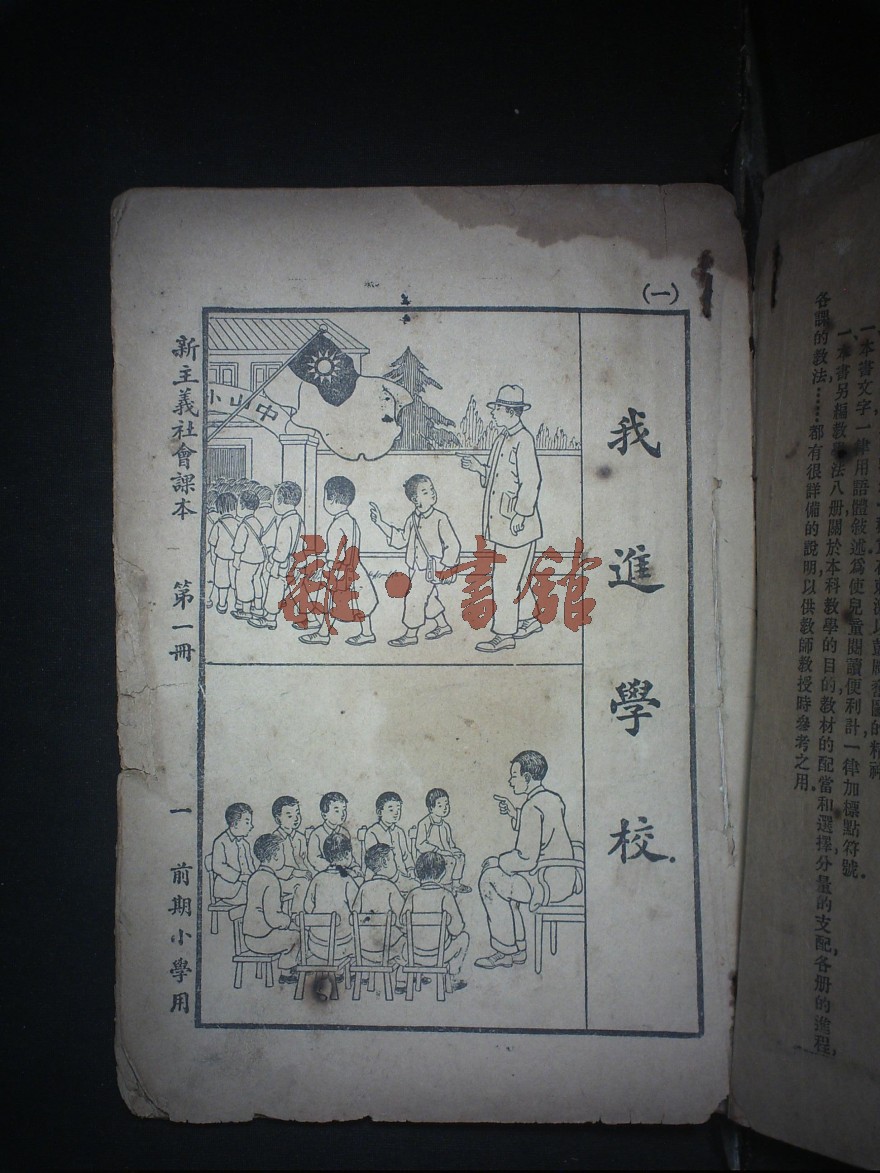 的精神
一本書文字,一律用語體敍述,爲使兒童閱讀便利計,一律加標點符號.
一本書另編教學法八册,關於本科教學的目的,教材的配當和選擇,分量的支配,各册的進程,
各課的教法……都有很詳備的說明,以供教師教授時參考之用.
(一)
我進學校.
中山小
新主義社會課本 第一冊 一 前期小學用
雜·書館